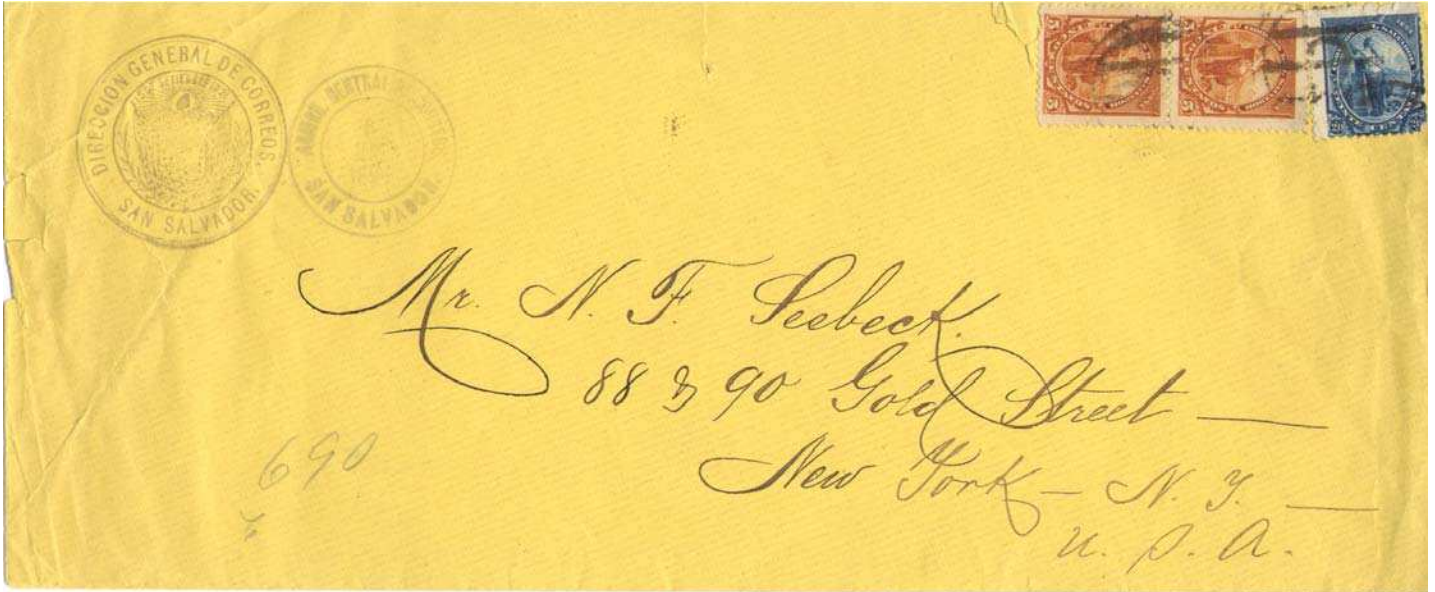 DIRECCION GENERAL DE CORREOS.
SAN SALVADOR.
SAN SALVADOR.
5 5
5 5
Mr. N. F. Seebeck.
88 & 90 Gold Street —
New York — N. Y. —
U. S. A.
690